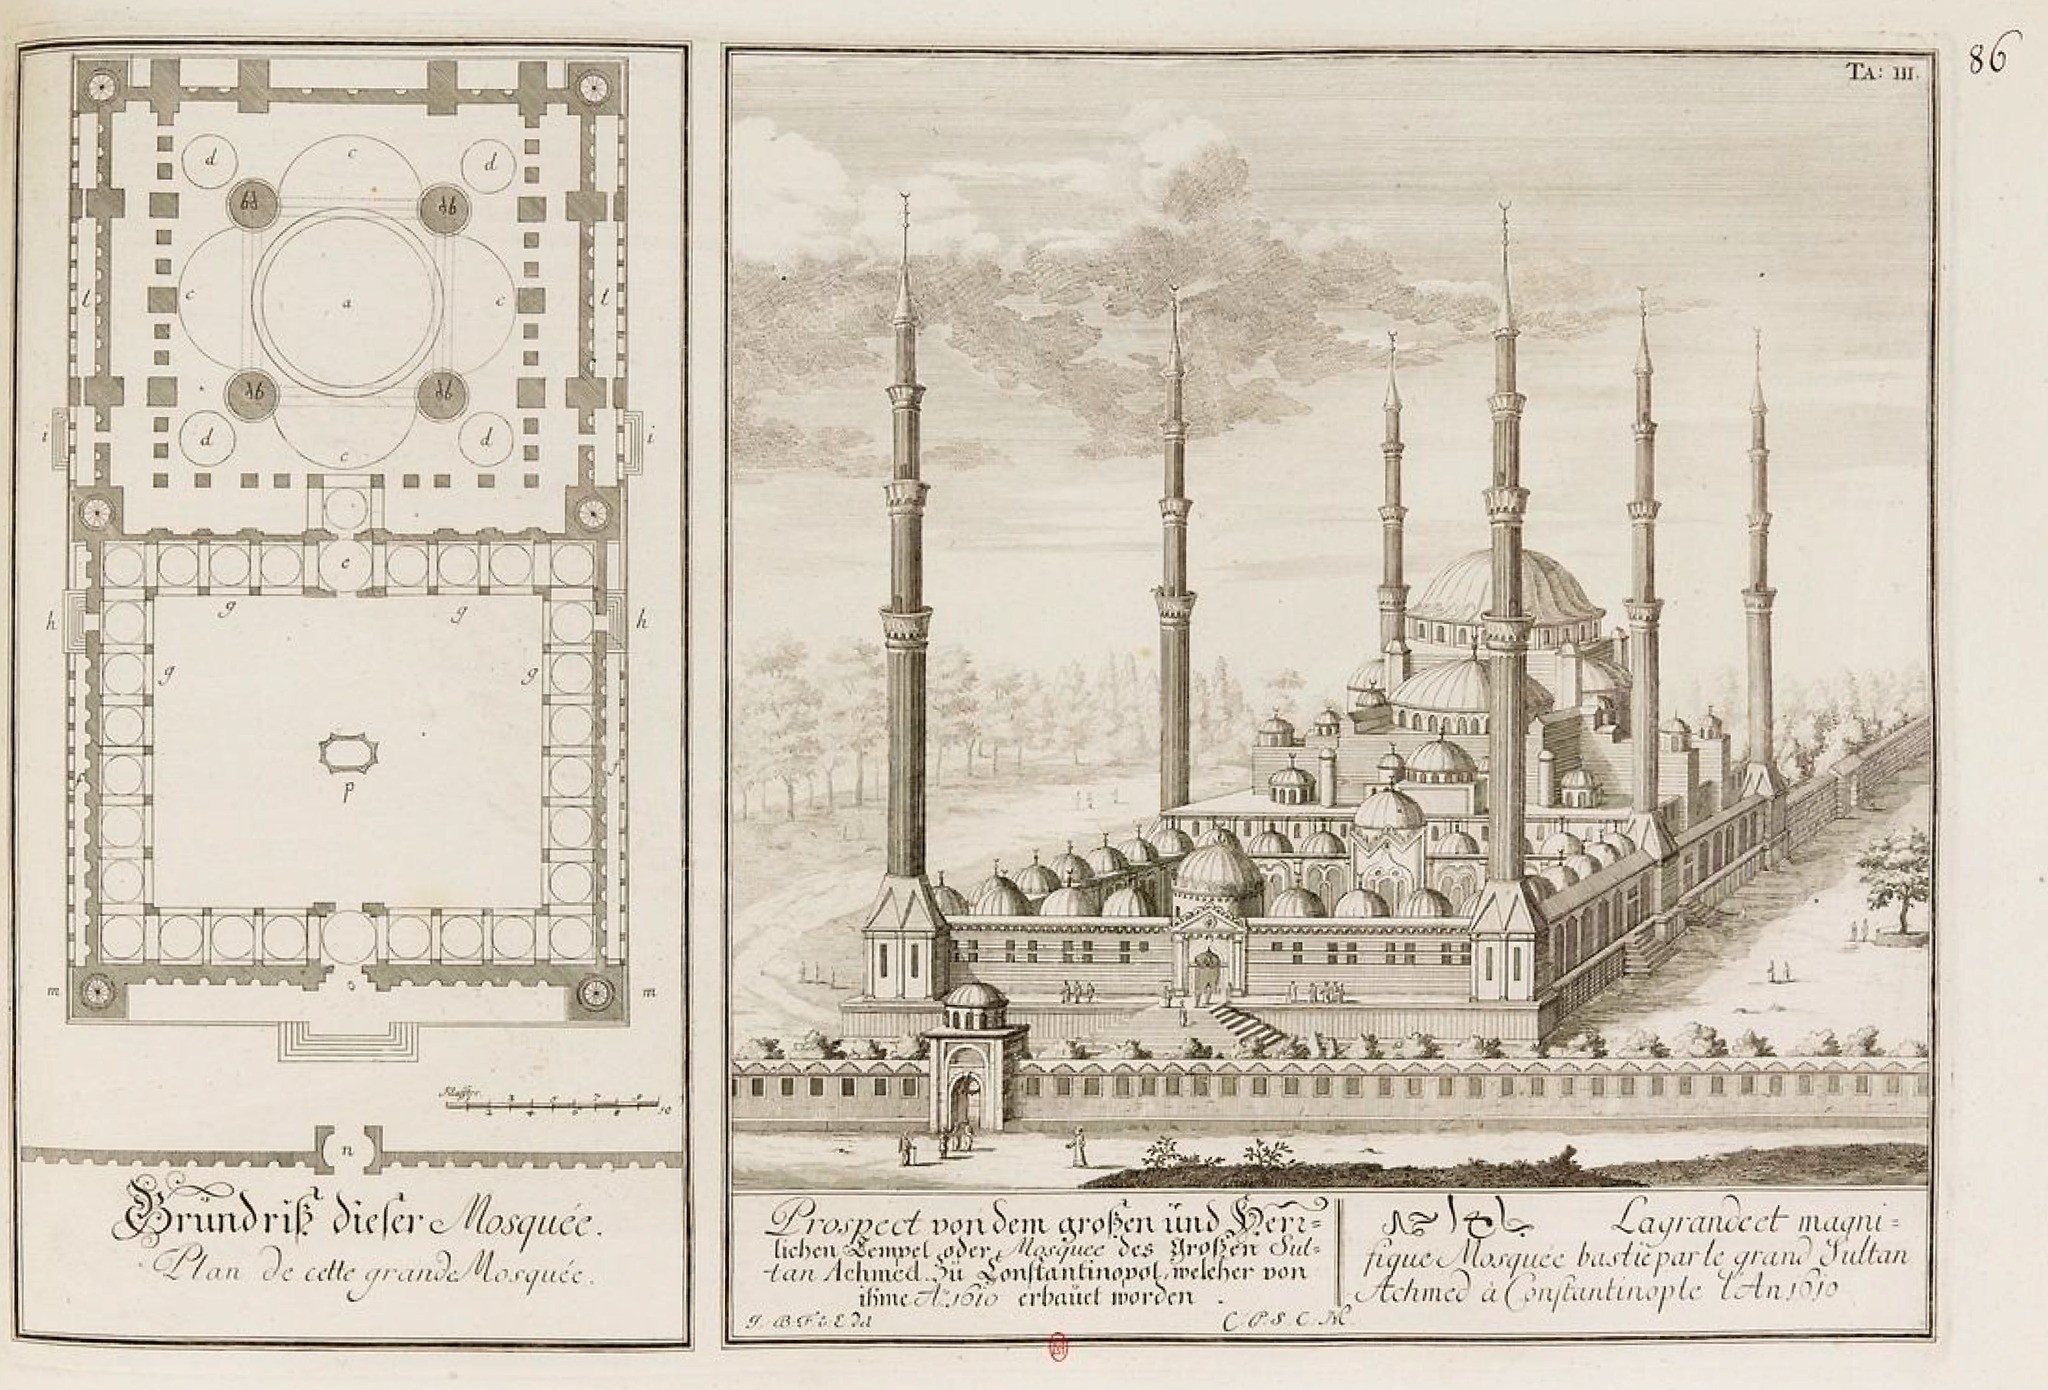 86
TA: III.
d c d
b b
l c a c l
b b
i d c d i
e
h g g h
g g
f p f
m o m
Klaffter.
1 2 3 4 5 6 7 8 9 10
n
Gründriß dieser Mosquée.
Plan de cette grande Mosquée.
Prospect von dem großen ünd Herr=
lichen Tempel oder Mosquee des Großen Sul=
tan Achmed Zü Constantinopol, welcher von
ihme A.º 1610 erbaüet worden.
La grande et magni=
fique Mosquée bastie par le grand Sultan
Achmed à Constantinople l'An 1610
J. B. F. v. E. del
C. P. S. C. M.